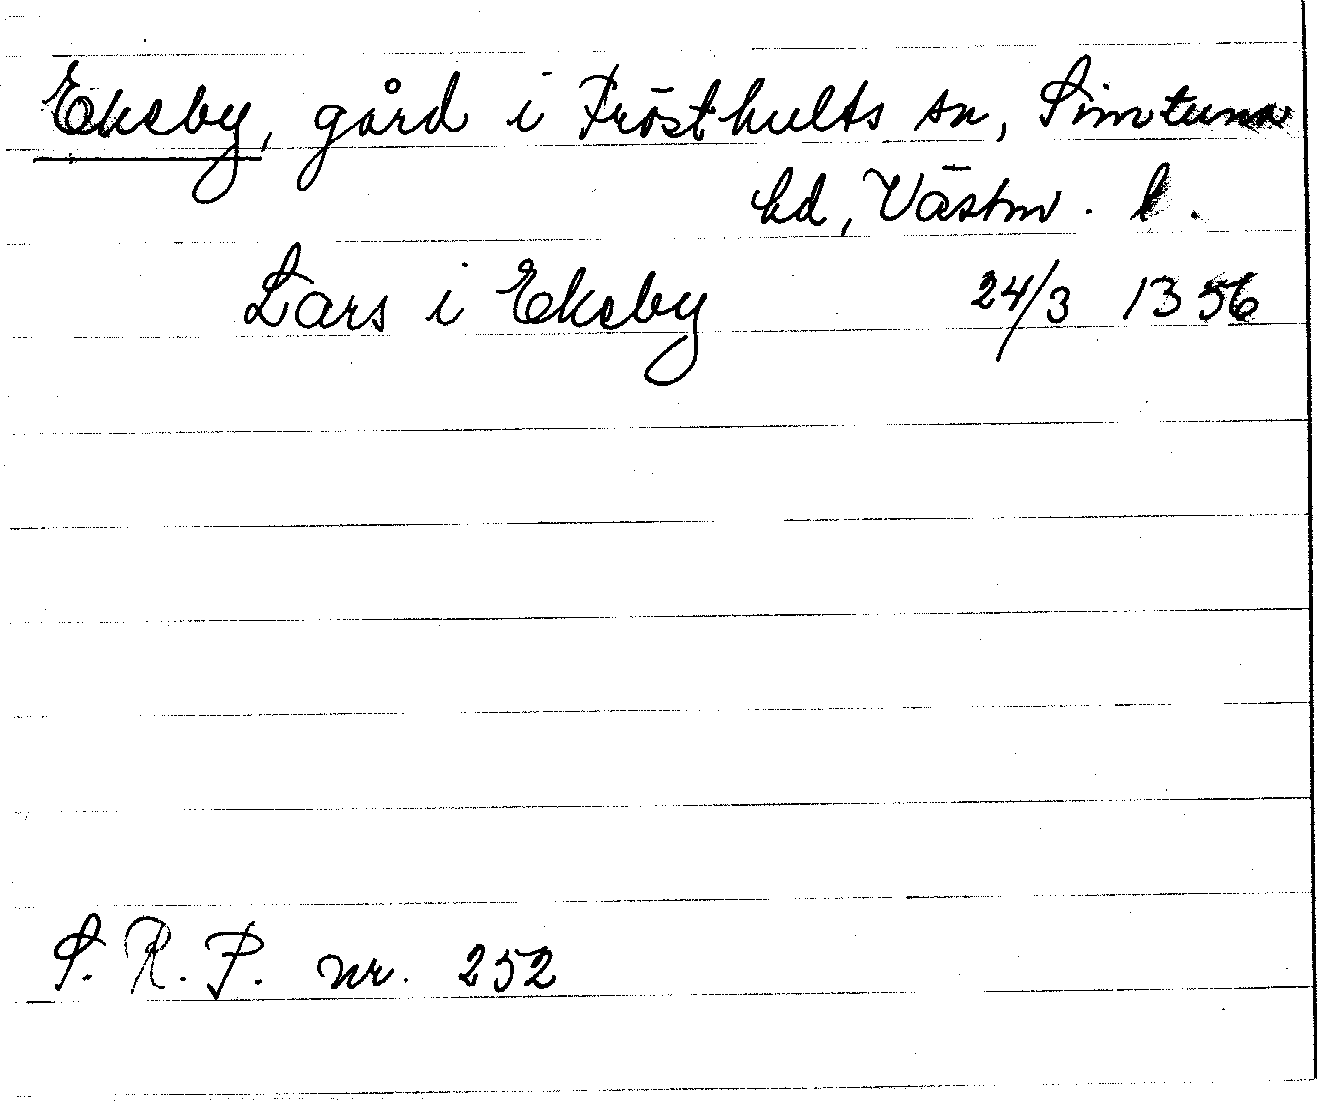 Ekeby, gård i Frösthults sn, Simtuna
hd, Västm. l.
Lars i Ekeby 24/3 1356
S. R. P. nr. 252